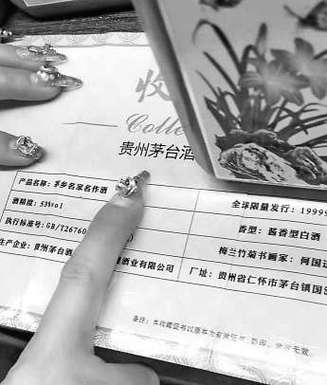 收
Colle
贵州茅台酒
产品名称：茅乡名家名作酒
全球限量发行：19999
酒精度：53%vol
香型：酱香型白酒
执行标准号：GB/T26760
梅兰竹菊书画家：何国
生产企业：贵州茅台 健酒业有限公司
厂址：贵州省仁怀市茅台镇国
备注：本收藏证书以原本为有效证书，